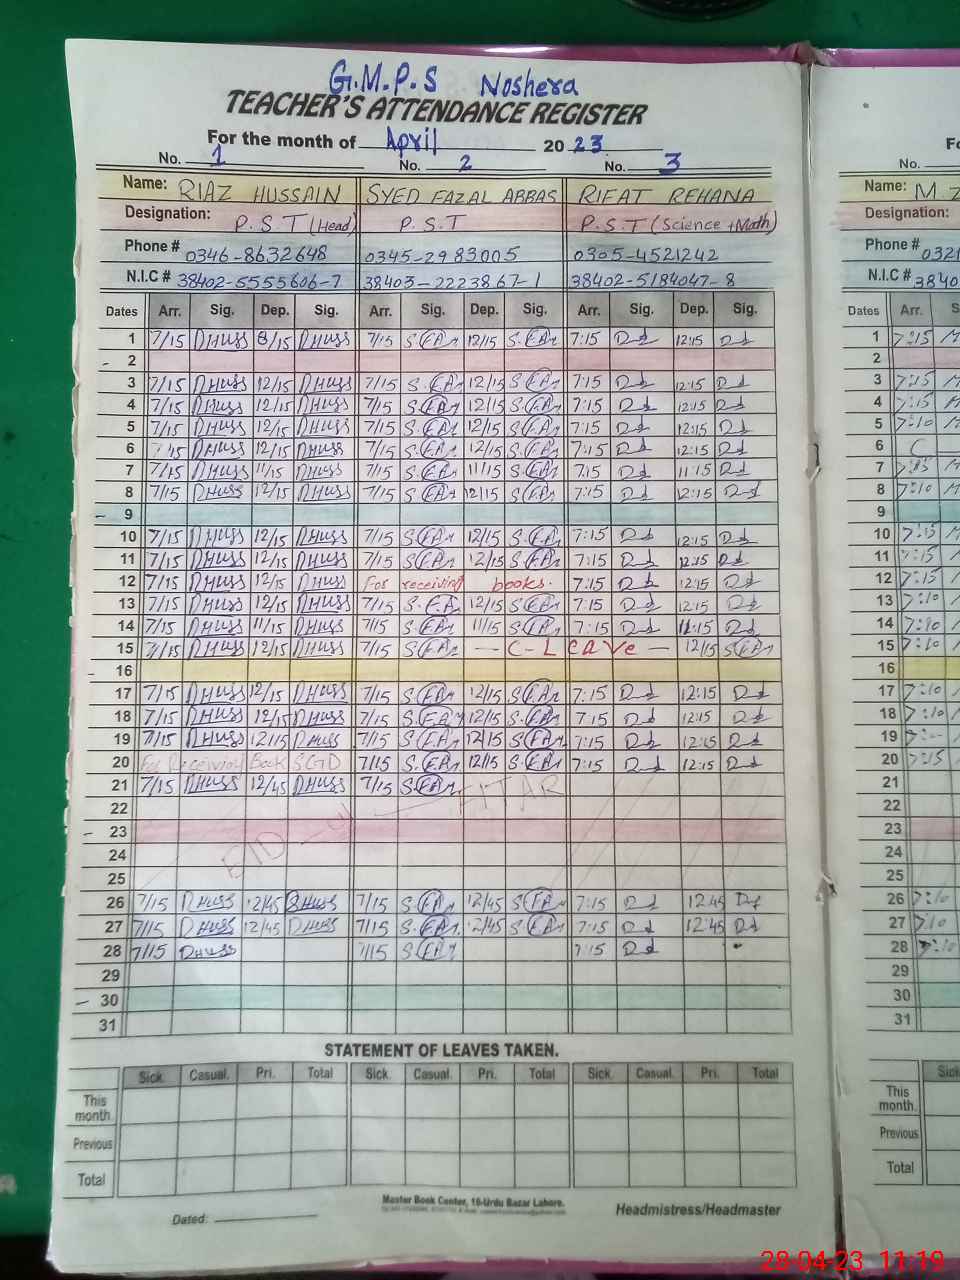 G.M.P.S Noshera
TEACHER'S ATTENDANCE REGISTER
For the month of April 2023
No. 1 No. 2 No. 3
Name: RIAZ HUSSAIN SYED FAZAL ABBAS RIFAT REHANA
Designation: P.S.T (Head) P.S.T P.S.T (Science +Math)
Phone # 0346-8632648 0345-2983005 0305-4521242
N.I.C # 38402-5555606-7 38403-2223867-1 38402-5184047-8
Dates Arr. Sig. Dep. Sig. Arr. Sig. Dep. Sig. Arr. Sig. Dep. Sig.
1 7/15 DHuss 8/15 DHuss 7/15 12/15 7:15 12:15
2
3 7/15 DHuss 12/15 DHuss 7/15 12/15 7:15 12:15
4 7/15 DHuss 12/15 DHuss 7/15 12/15 7:15 12:15
5 7/15 DHuss 12/15 DHuss 7/15 12/15 7:15 12:15
6 DHuss 12/15 DHuss 7/15 12/15 7:15 12:15
7 7/15 DHuss 11/15 DHuss 7/15 11/15 7:15 11:15
8 7/15 DHuss 12/15 DHuss 7/15 12/15 7:15 12:15
9
10 7/15 DHuss 12/15 DHuss 7/15 12/15 7:15 12:15
11 7/15 DHuss 12/15 DHuss 7/15 12/15 7:15 12:15
12 7/15 DHuss 12/15 DHuss For receiving books. 7:15 12:15
13 7/15 DHuss 12/15 DHuss 7/15 12/15 7:15 12:15
14 7/15 DHuss 11/15 DHuss 7/15 11/15 7:15 11:15
15 7/15 DHuss 12/15 DHuss 7/15 — C-Leave — 12/15
16
17 7/15 DHuss 12/15 DHuss 7/15 12/15 7:15 12:15
18 7/15 DHuss 12/15 DHuss 7/15 12/15 7:15 12:15
19 7/15 DHuss 12/15 DHuss 7/15 12/15 7:15 12:15
20 For Receiving Book SGD 7/15 12/15 7:15 12:15
21 7/15 DHuss 12/45 DHuss 7/15
22
23
24
EID-ul-FITAR
25
26 7/15 DHuss 12/45 DHuss 7/15 12/45 7:15 12:45
27 7/15 DHuss 12/45 DHuss 7/15 12/45 7:15 12:45
28 7/15 DHuss 7/15 7:15
29
30
31
STATEMENT OF LEAVES TAKEN.
Sick. Casual. Pri. Total Sick. Casual. Pri. Total Sick. Casual. Pri. Total
This month.
Previous
Total
Master Book Center, 16-Urdu Bazar Lahore.
Dated: Headmistress/Headmaster
No.
Name: M.
Designation:
Phone #
N.I.C #
Dates Arr.
1 7:15
2
3 7:15
4 7:15
5 7:10
6 C
7
8 7:10
9
10 7:15
11 7:15
12 7:15
13 7:10
14 7:10
15 7:10
16
17 7:10
18 7:10
19
20 7:15
21
22
23
24
25
26 7:10
27 7:10
28 7:10
29
30
31
This month.
Previous
Total
28-04-23 11:19